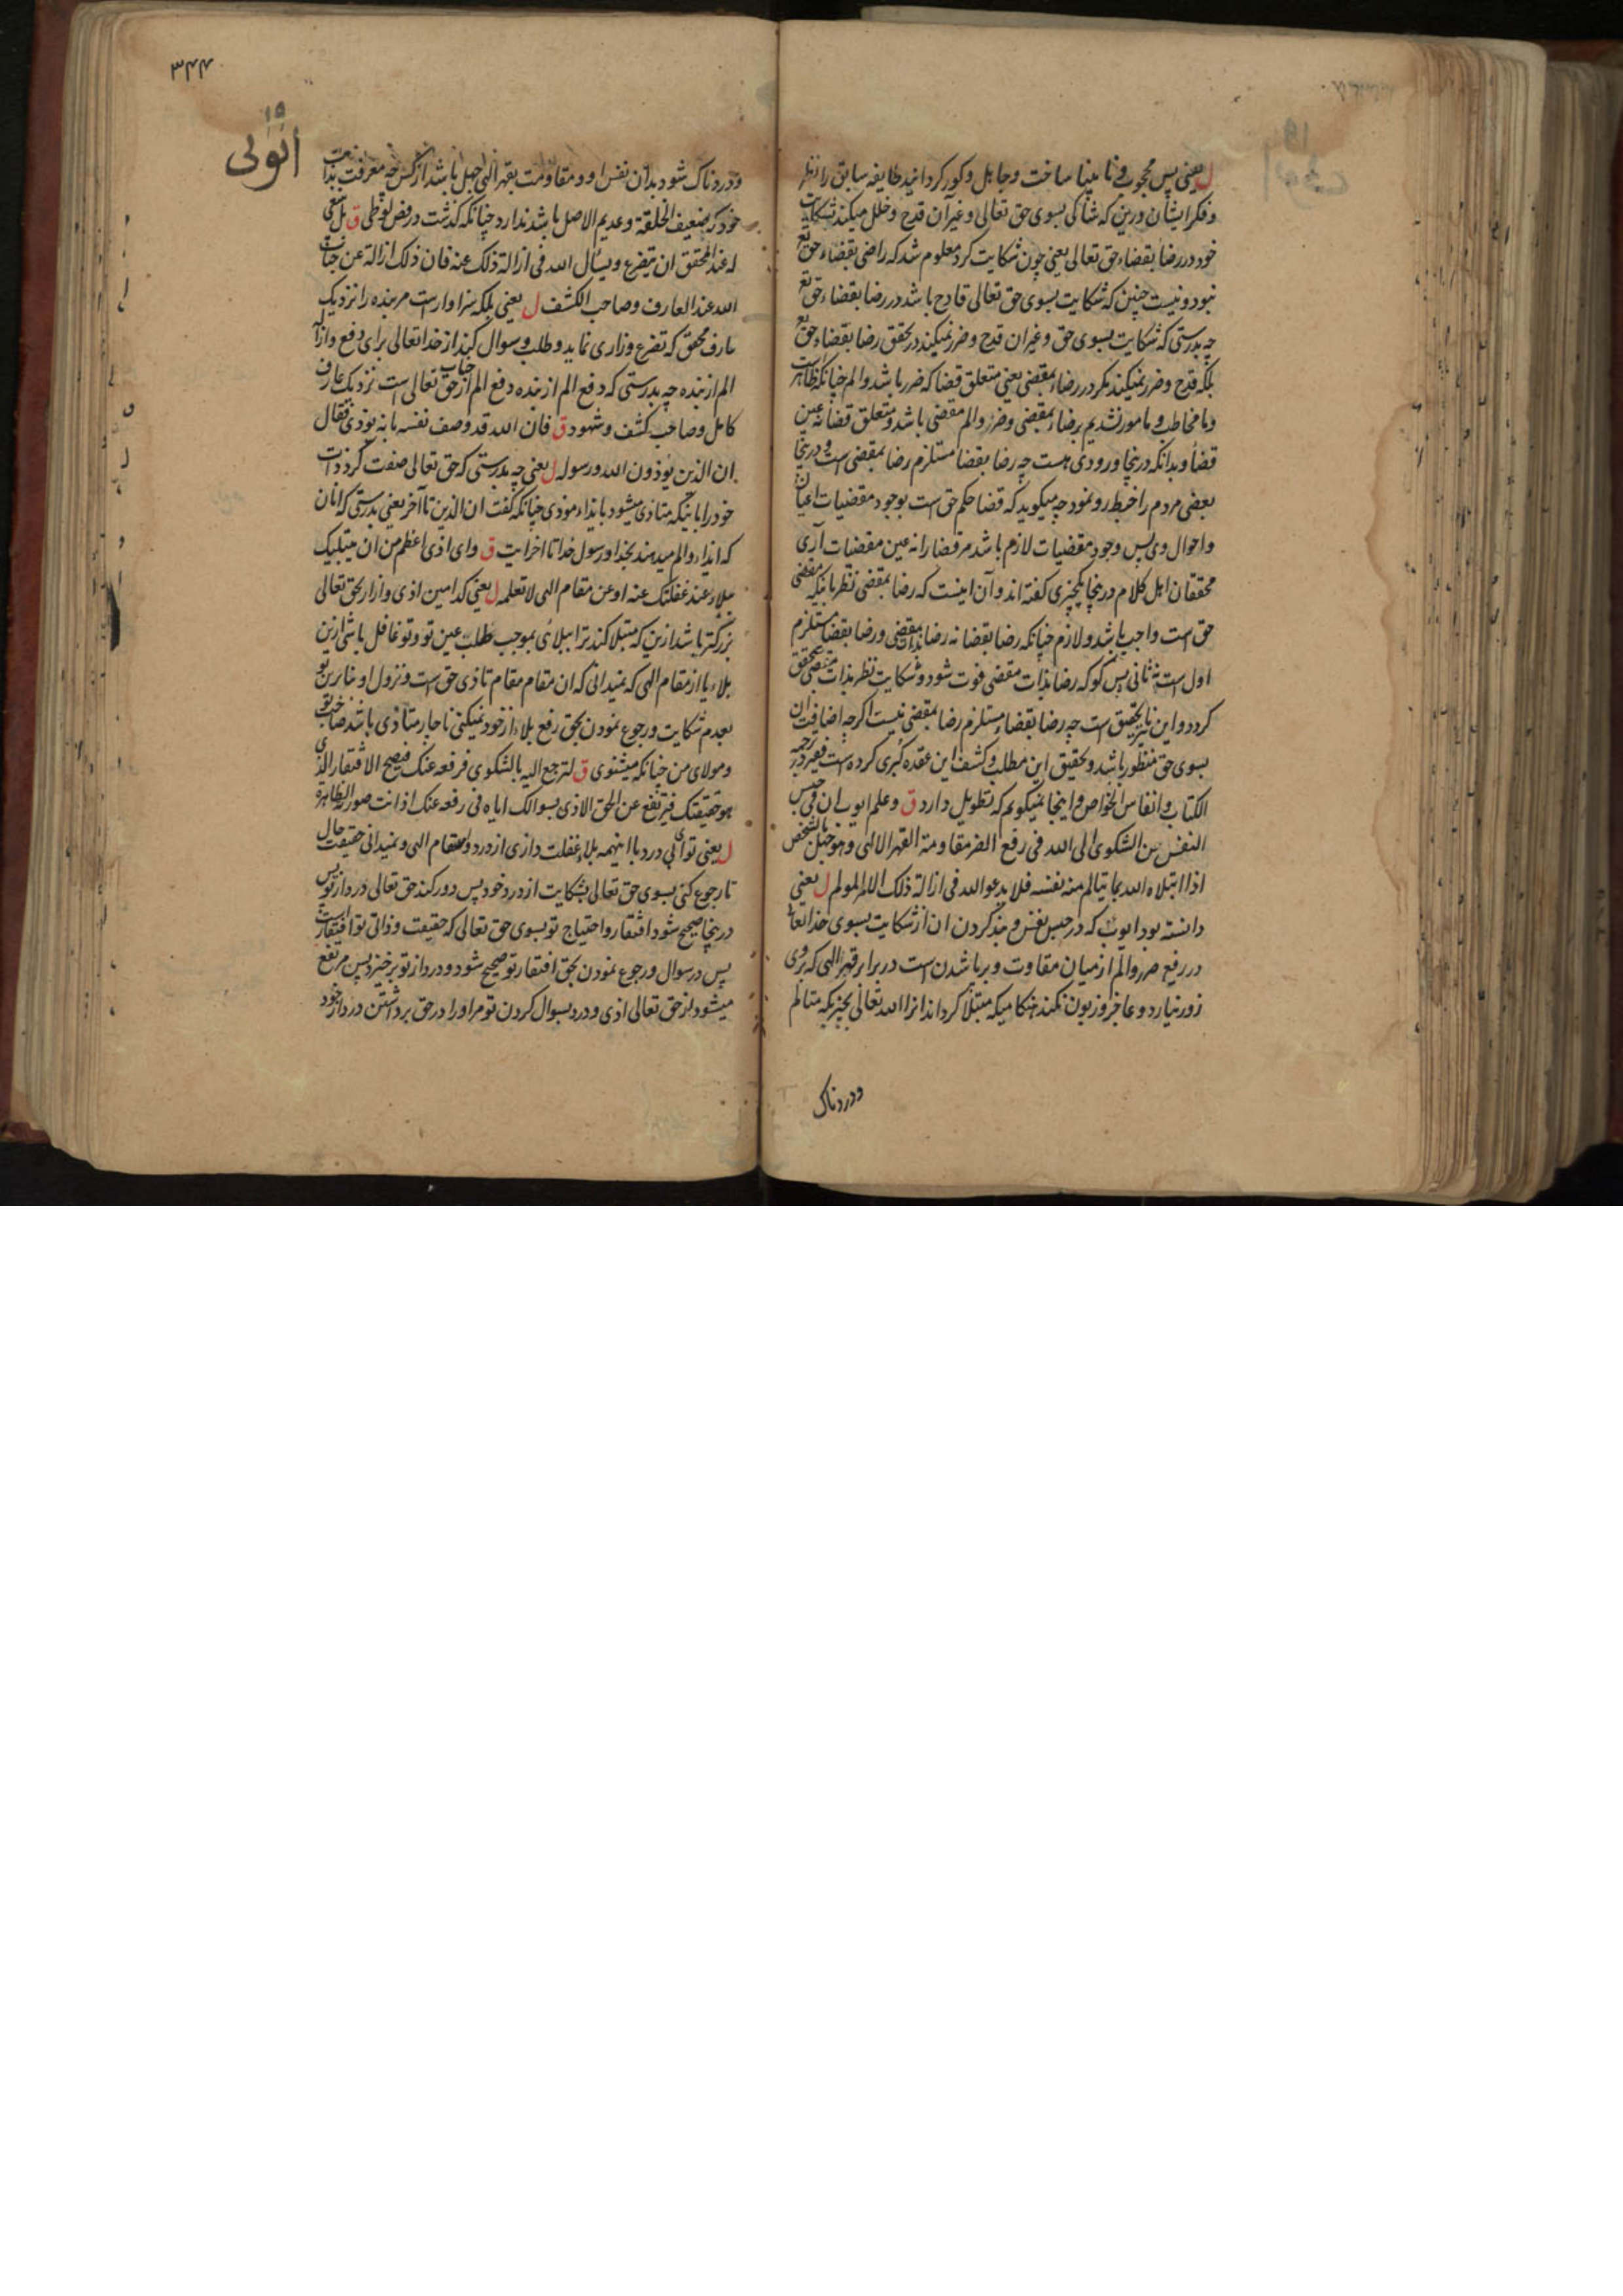 ل یعنی پس محجوب و نابینا ساخت و جاهل و کور کردانید طایفه سابق را نظر
و فکر ایشان درین که شاکی بسوی حق تعالی و غیر آن قدح و خلل میکند شکایت
خود در رضا بقضاء حق تعالی یعنی چون شکایت کرد معلوم شد که راضی بقضاء حق تع
نبود و نیست چنین که شکایت بسوی حق تعالی قادح باشد در رضا بقضاء حق تع
چه بدرستی که شکایت بسوی حق و غیر ان قدح و ضرر نمیکند در تحقق رضا بقضاء حق تع
بلکه قدح و ضرر نمیکند مکر در رضاء بمقضی یعنی متعلق قضا که ضرر باشد و الم چنانکه ظاهرست
و ما مخاطب و مامور نشدیم برضاء بمقضی و ضرر و الم مقضی باشد و متعلق قضا نه عین
قضا و بدانکه درینجا ورودی هست چه رضا بقضا مستلزم رضا بمقضی است و درینجا
بعضی مردم را خبط رو نمود چه میکوید که قضا حکم حق است بوجود مقضیات اعیان
و احوال وی پس وجود مقضیات لازم باشد مر قضا را نه عین مقضیات آری
محققان اهل کلام درینجا یکچیزی کفته اند و آن اینست که رضا بمقضی نظر بانکه مقضی
حق است واجب باشد و لازم چنانکه رضا بقضا نه رضا بذات مقضی و رضا بقضا مستلزم
اول است نه ثانی پس کو که رضا بذات مقضی فوت شود و شکایت نظر بذات مقضی متحقق
کردد و این نیز تحقیق است چه رضا بقضاء مستلزم رضا بمقضی نیست اکرچه اضافت ان
بسوی حق منظور باشد و تحقیق این مطلب و کشف این عقده کبری کرده است فقیر در ترجمه
الکتاب و انفاس الخواص و اینجا نمیکویم که تطویل دارد ق و علم ایوب ان فی حبس
النفس عن الشکوی الی الله فی رفع الضر مقاومة القهر الالهی و هو جهل بالشخص
اذا ابتلاه الله بما یتالم منه نفسه فلا یدعو الله فی ازالة ذلک الالم المولم ل یعنی
دانسته بود ایوب که در حبس نفس و بند کردن ان از شکایت بسوی خدا تعالی
در رفع ضرر و الم از میان مقاوت و برپا شدن است در برابر قهر الهی که بروی
زور نیارد و عاجز و زبون نکند هنکامیکه مبتلا کرداند انرا الله تعالی بچیزیکه متالم
ودردناک
۳۴۴
۱۹
ایوبی
و دردناک شود بدان نفس او و مقاومت بقهر الهی جهل باشد از کس چه معرفت بذات
خود که ضعیف الخلقة و عدیم الاصل باشد ندارد چنانکه کذشت در فص لوطی ق بل ینبغی
له عند المحقق ان یتضرع و یسأل الله فی ازالة ذلک عنه فان ذلک ازالة عن جناب
الله عند العارف و صاحب الکشف ل یعنی بلکه سزاوار است مر بنده را نزدیک
عارف محقق که تضرع و زاری نماید و طلب و سوال کند از خدا تعالی برای دفع و ازالهٔ
الم از بنده چه بدرستی که دفع الم از بنده دفع الم از جناب حق تعالی است نزدیک عارف
کامل و صاحب کشف و شهود ق فان الله قد وصف نفسه بانه یؤذی فقال
ان الذین یؤذون الله و رسوله ل یعنی چه بدرستی که حق تعالی صفت کرد ذات
خود را باینکه متاذی میشود بایذاء موذی چنانکه کفت ان الذین تا آخر یعنی بدرستی که انان
که ایذاء و الم میدهند بخدا و رسول خدا تا اخر ایت ق و ای اذی اعظم من ان یبتلیک
ببلاء عند غفلتک عنه او عن مقام الهی لا تعلمه ل یعنی کدامین اذی و ازار بحق تعالی
بزرکتر باشد ازین که مبتلا کند ترا ببلائی بموجب طلب عین تو و تو غافل باشی ازین
بلاء یا از مقام الهی که نمیدانی که ان مقام مقام تاذی حق است و نزول او بنابرین تو
بعدم شکایت و رجوع نمودن بحق رفع بلاء از خود نمیکنی ناچار متاذی باشد صاحب تو
و مولای من چنانکه میشنوی ق لترجع الیه بالشکوی فرفعه عنک فیصح الافتقار الذی
هو حقیقتک فیرتفع عن الحق الاذی بسوالک ایاه فی رفعه عنک اذ انت صورته الظاهرة
ل یعنی تو ای بی درد با اینهمه بلاء غفلت داری از درد و مقام الهی و نمیدانی حقیقت حال
تا رجوع کنی بسوی حق تعالی بشکایت از درد خود پس دور کند حق تعالی درد از تو پس
درینجا صحیح شود افتقار و احتیاج تو بسوی حق تعالی که حقیقت و ذاتی تو افتقار است
پس در سوال و رجوع نمودن بحق افتقار تو صحیح شود و درد از تو برخیزد پس مرتفع
میشود از حق تعالی اذی و درد بسوال کردن تو مر او را در حق برداشتن درد از خود